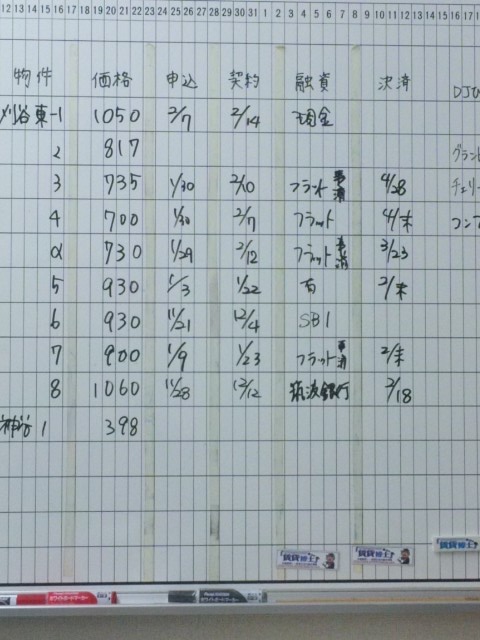 12 13 14 15 16 17 18 19 20 21 22 23 24 25 26 27 28 29 30 31 1 2 3 4 5 6 7 8 9 10 11 12 13 14 15 16 17
物件 価格 申込 契約 融資 決済
刈谷東-1 1050 2/7 2/14 現金
2 817
3 735 1/30 2/10 フラット 事済 4/28
4 700 1/30 2/7 フラット 4/末
α 730 1/29 2/12 フラット 事済 3/23
5 930 1/3 1/22 2/末
6 930 11/21 12/4 SBI
7 900 1/9 1/23 フラット 2/末
8 1060 11/28 12/12 筑波銀行 2/18
神谷 1 398
グラン
チェリー
コンフ
賃貸博士
賃貸博士
賃貸博士
ホワイトボードマーカー
ホワイトボードマーカー